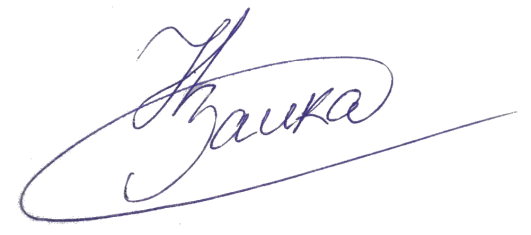 Заика